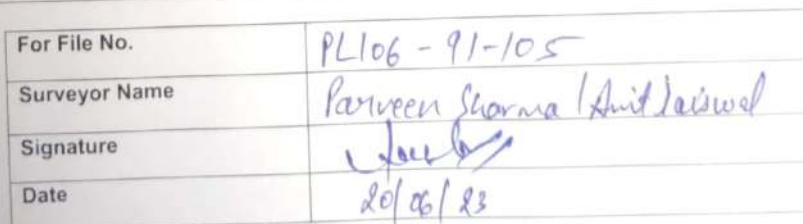 For File No. PL106-91-105
Surveyor Name Parveen Sharma / Amit Jaiswal
Signature
Date 20/06/23